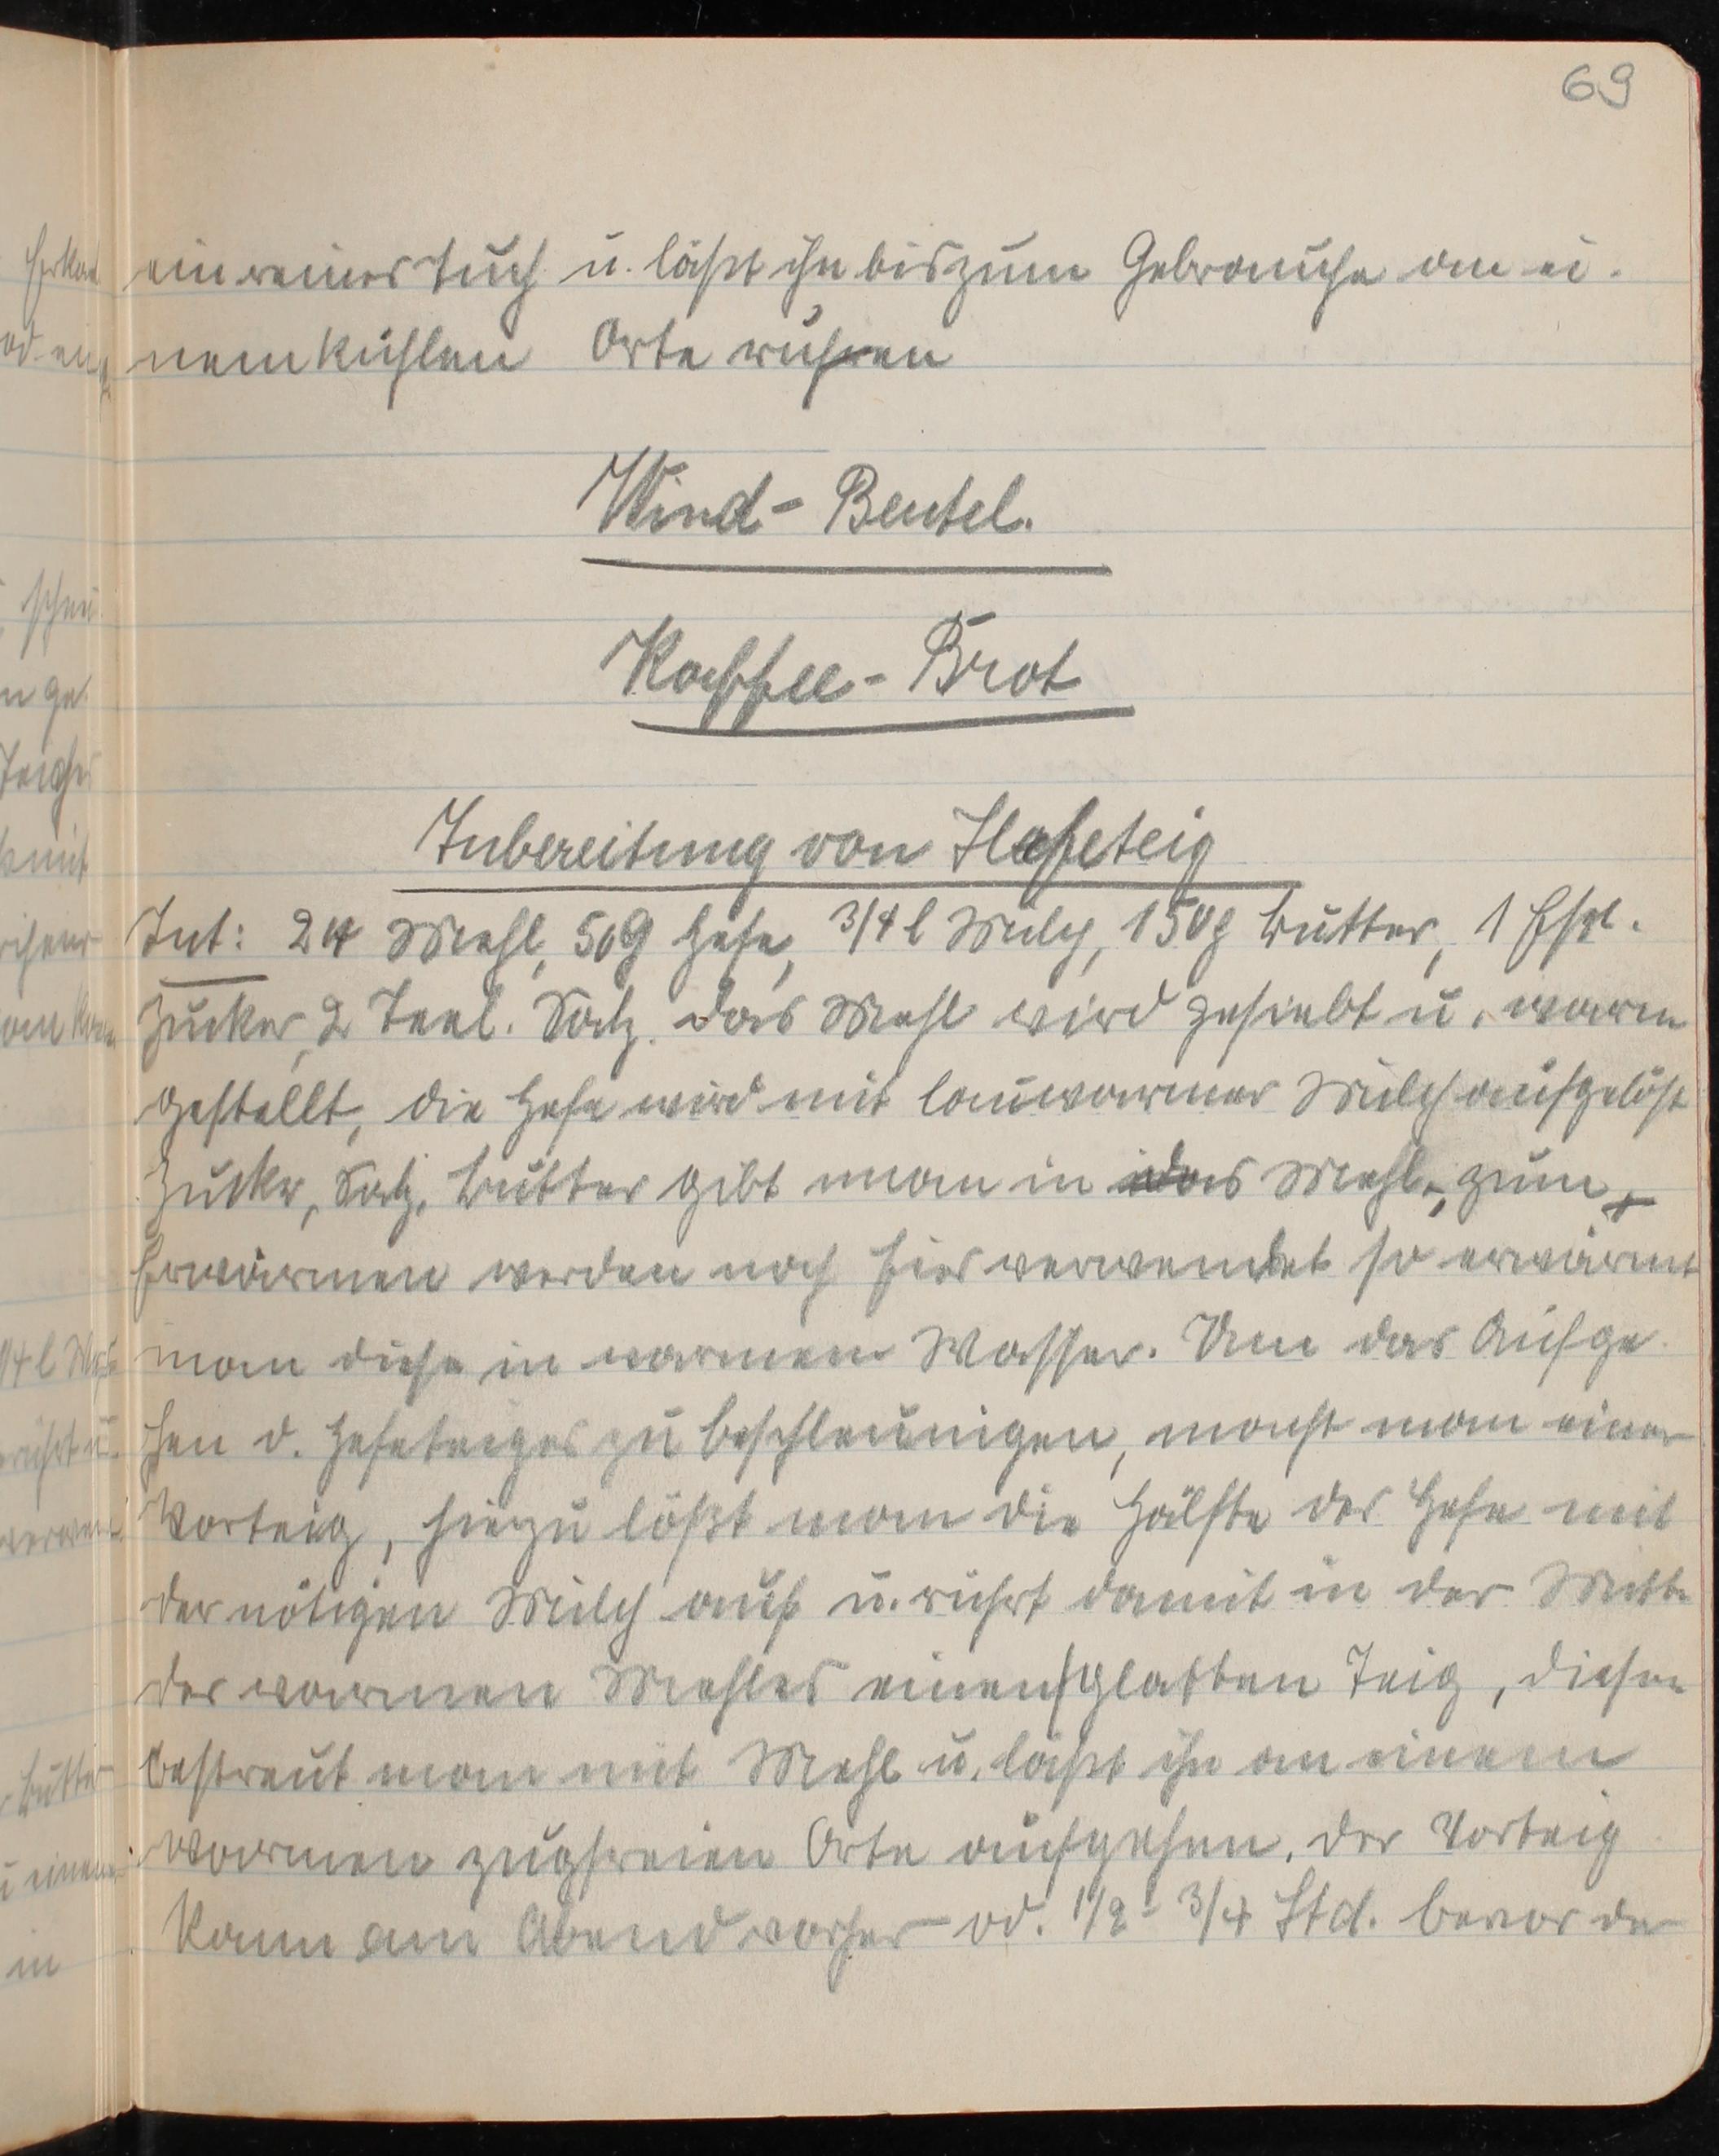 69
ein reines Tuch u. läßt ihn bis zum Gebrauche an ei-
nem kühlen Orte ruhen
Wind-Beutel.
Kaffee-Brot
Zubereitung von Hefeteig
Zut: 2 ℔ Mehl, 50g Hefe, 3/4 l Milch, 150g Butter, 1 Eßl.
Zucker, 2 Teel. Salz. Das Mehl wird gesiebt u. warm
gestellt, die Hefe wird mit lauwarmer Milch aufgelöst
Zucker, Salz, Butter gibt man in das Mehl, zum
Erwärmen werden noch Eier verwendet so erwärmt
man diese in warmem Wasser. Um das Aufge-
hen d. Hefeteiges zu beschleunigen, macht man einen
Vorteig, hiezu lößt man die Hälfte der Hefe mit
der nötigen Milch auf u. rührt damit in der Mitte
des warmen Mehles einen glatten Teig, diesen
bestreut man mit Mehl u. läßt ihn an einem
warmen zugfreien Orte aufgehen. Der Vorteig
kann am Abend vorher od. 1/2 - 3/4 Std. bevor de